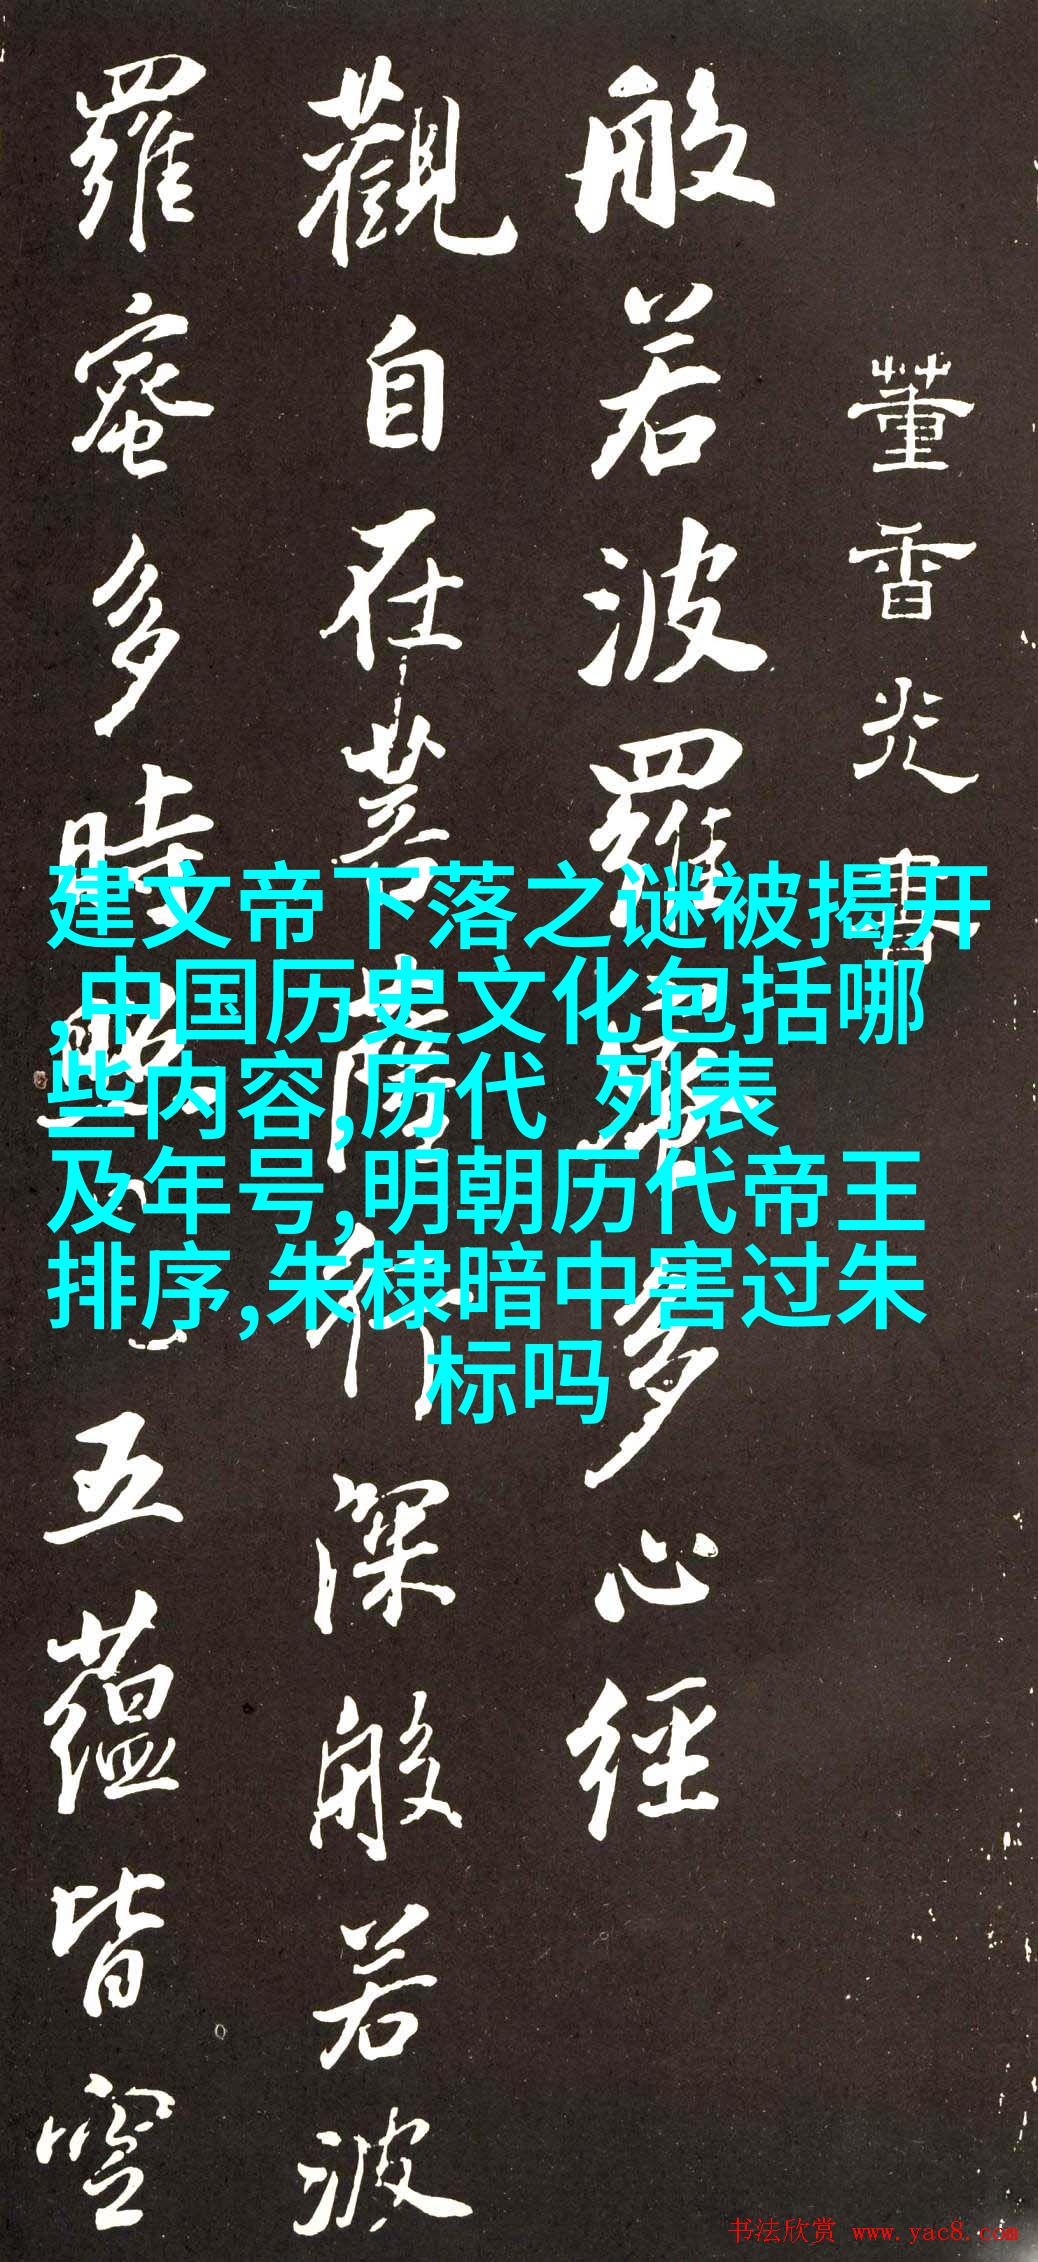 董香光書
般若波羅蜜多心經
觀自在菩薩行深般若波
羅蜜多時照見五蘊皆空
建文帝下落之谜被揭开
,中国历史文化包括哪
些内容,历代 列表
及年号,明朝历代帝王
排序,朱棣暗中害过朱
标吗
书法欣赏 www.yac8.com